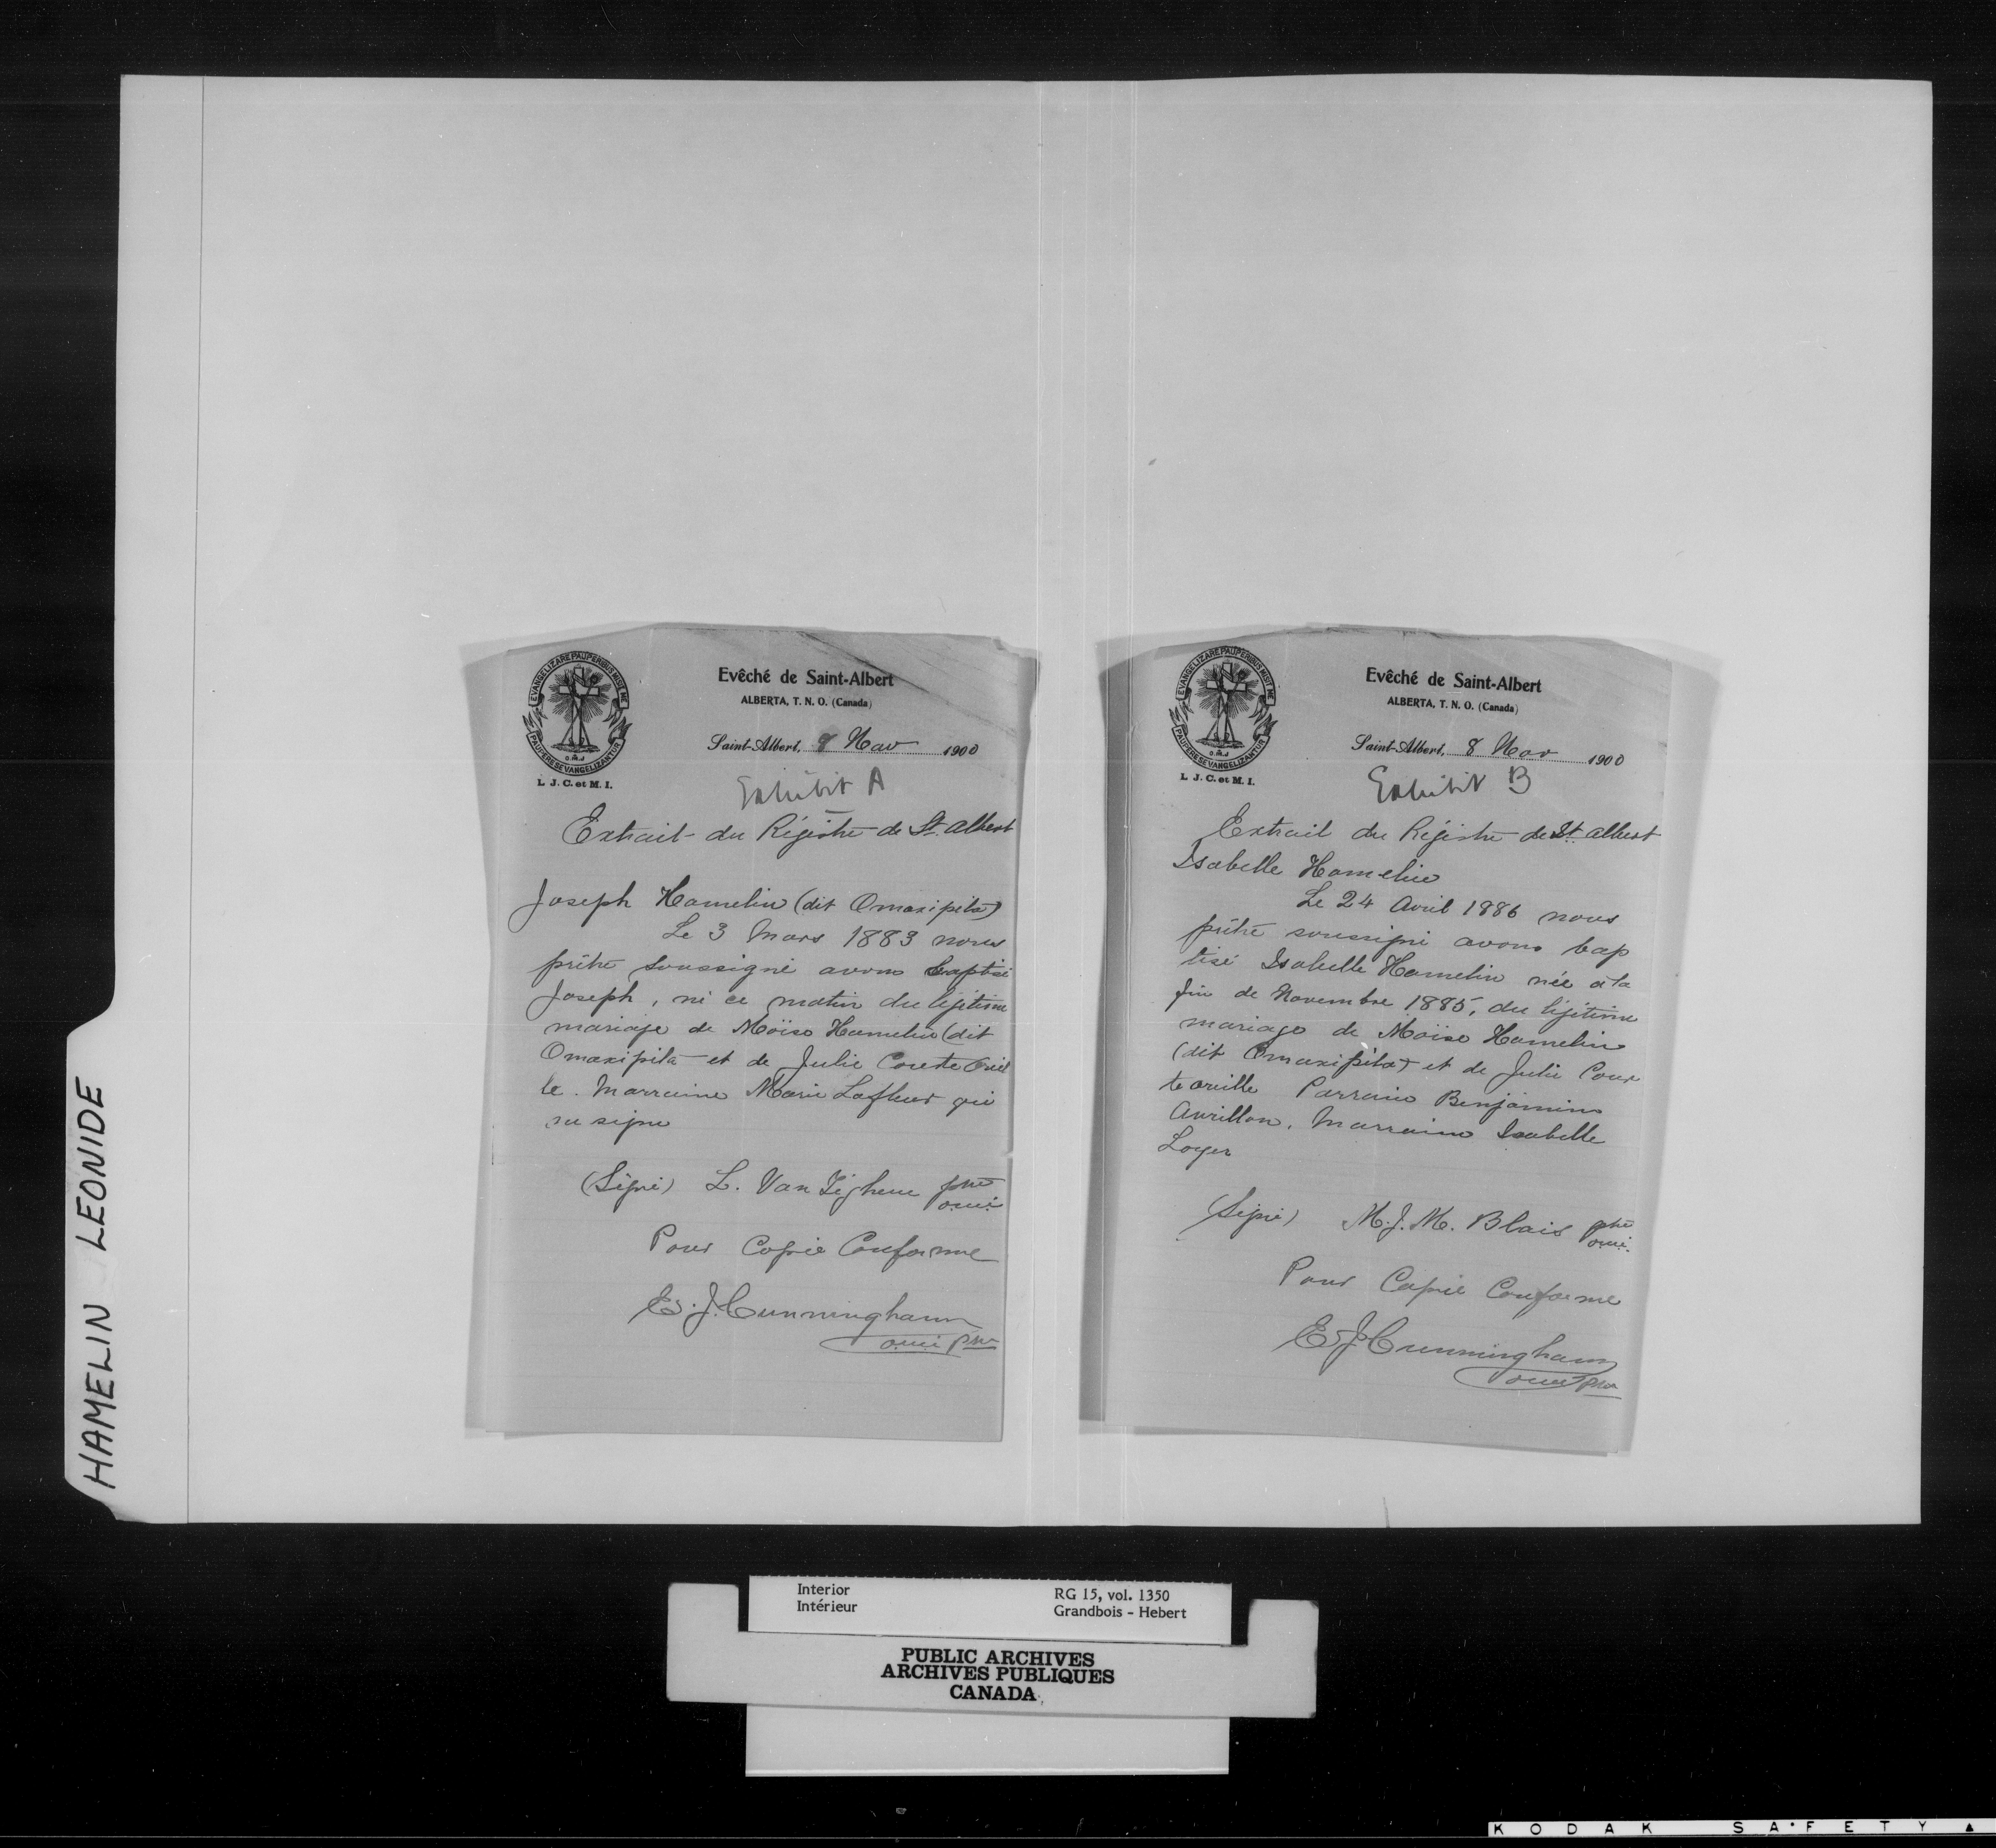 HAMELIN LEONIDE
EVANGELIZARE PAUPERIBUS MISIT ME
PAUPERES EVANGELIZANTUR
O.M.J
L. J. C. et M. I.
Evêché de Saint-Albert
ALBERTA, T. N. O. (Canada)
Saint-Albert, 8 Nov 1900
Exhibit A
Extrait du Régistre de St. Albert
Joseph Hamelin (dit Omaxipita)
Le 3 Mars 1883 nous
prêtre soussigné avons baptisé
Joseph, né ce matin du légitime
mariage de Moïse Hamelin (dit
Omaxipita et de Julie Courte Oreil
le. Marraine Marie Lafleur qui
a signé
(Signé) L. Van Tighem ptre
omi
Pour Copie Conforme
E. J. Cunningham
omi ptre
EVANGELIZARE PAUPERIBUS MISIT ME
PAUPERES EVANGELIZANTUR
O.M.J
L. J. C. et M. I.
Evêché de Saint-Albert
ALBERTA, T. N. O. (Canada)
Saint-Albert, 8 Nov 1900
Exhibit B
Extrait du Régistre de St. Albert
Isabelle Hamelin
Le 24 Avril 1886 nous
prêtre soussigné avons bap
tisé Isabelle Hamelin née à la
fin de Novembre 1885, du légitime
mariage de Moïse Hamelin
(dit Omaxipita) et de Julie Cour
te oreille Parrain Benjamin
Avrillon. Marraine Isabelle
Loyer
(Signé) M. J. M. Blais ptre
omi.
Pour Copie Conforme
E J Cunningham
omi ptre
Interior
Intérieur
RG 15, vol. 1350
Grandbois - Hebert
PUBLIC ARCHIVES
ARCHIVES PUBLIQUES
CANADA
KODAK SAFETY